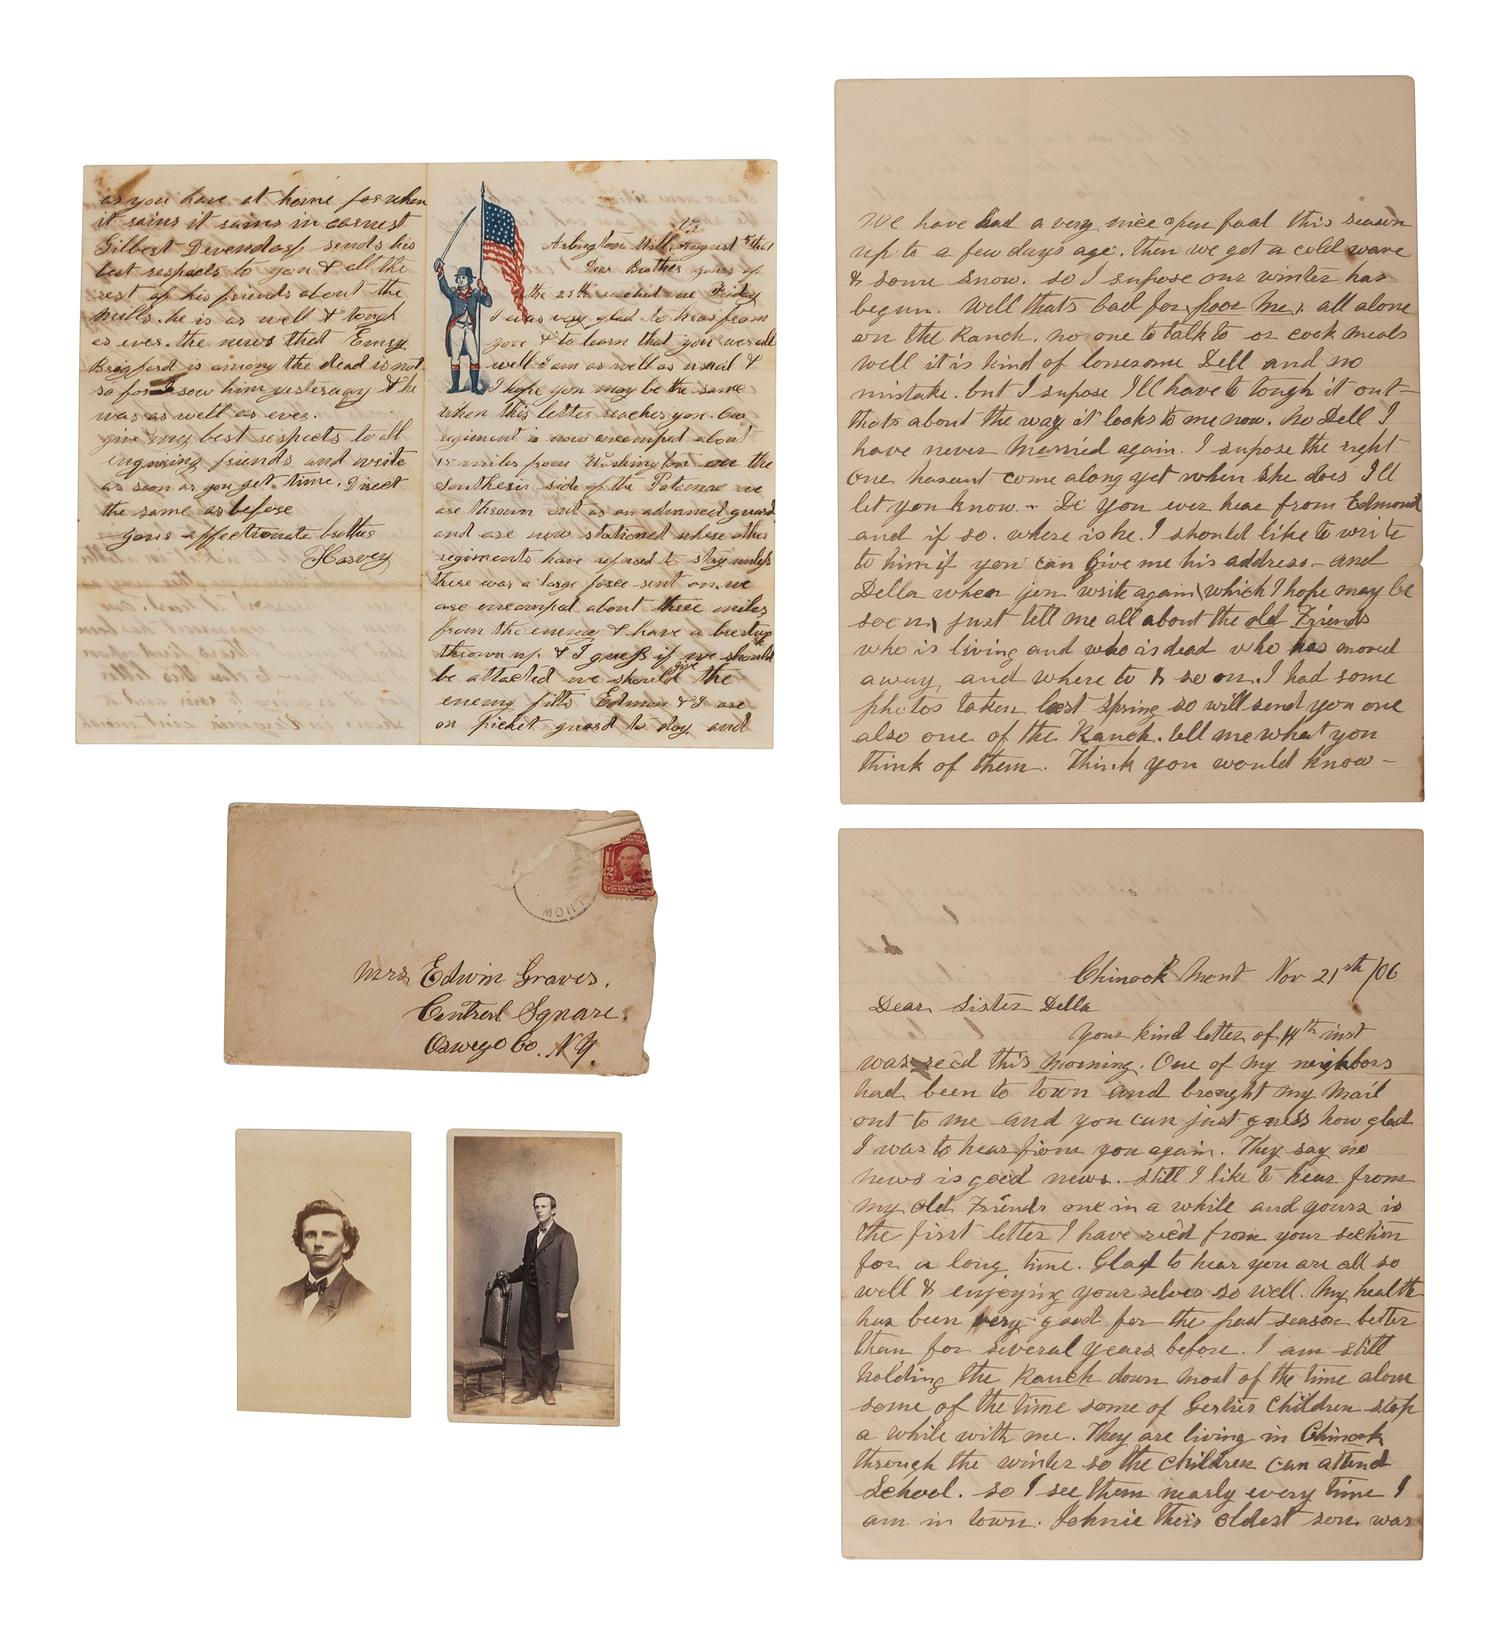 as you have at home for when
it rains it rains in earnest
Gilbert Devendorf sends his
best respects to you & all the
rest of his friends about the
mills. he is as well & tough
as ever. the news that Emery
is among the dead is not
so for I saw him yesterday & he
was as well as ever.
give my best respects to all
enquiring friends and write
as soon as you get time. Direct
the same as before
yours affectionate brother
Harvey
Va
Arlington Mills August 5th 61
Dear Brother yours of
the 28th reached me Friday
I was very glad to hear from
you & to learn that you were all
well I am as well as usual &
I hope you may be the same
when this letter reaches you. Our
regiment is now encamped about
15 miles from Washington on the
Southern side of the Potomac we
are thrown out as an advanced guard
and are now stationed where other
regiments have refused to stay unless
there was a large force sent on. we
are encamped about three miles
from the enemy & have a brestwork
thrown up. & I guess if we should
be attacked we should give the
enemy fitts Edmon & I are
on picket guard to day and
We have had a very nice open faal this season
up to a few days ago. then we got a cold wave
& some snow. so I supose our winter has
begun. Well thats bad for poor me, all alone
on the Ranch. no one to talk to or cook meals
well it is kind of lonesome Dell and no
mistake. but I supose I'll have to tough it out-
thats about the way it looks to me now. No Dell I
have never married again. I supose the right
one hasent come along yet when she does I'll
let you know. - Do you ever hear from Edmond
and if so. where is he. I should like to write
to him if you can give me his address - and
Della when you write again (which I hope may be
soon) just tell me all about the old Friends
who is living and who is dead who has moved
away and where to & so on. I had some
photos taken last spring so will send you one
also one of the Ranch. tell me what you
think of them. Think you would know -
MONT
Mrs Edwin Graves.
Central Square.
Oswego Co. N.Y.
Chinook Mont Nov 21st /06
Dear Sister Della
Your kind letter of 14th inst
was recd this morning. One of my neighbors
had been to town and brought my mail
out to me and you can just guess how glad
I was to hear from you again. They say no
news is good news. still I like to hear from
my old Friends one in a while and yours is
the first letter I have rec'd from your section
for a long time. Glad to hear you are all so
well & enjoying yourselves so well. My health
has been very good for the past season better
than for several years before. I am still
holding the Ranch down most of the time alone
some of the time some of Children stop
a while with me. They are living in Chinook
through the winter so the children can attend
School. so I see them nearly every time I
am in town. Johnie their oldest son was